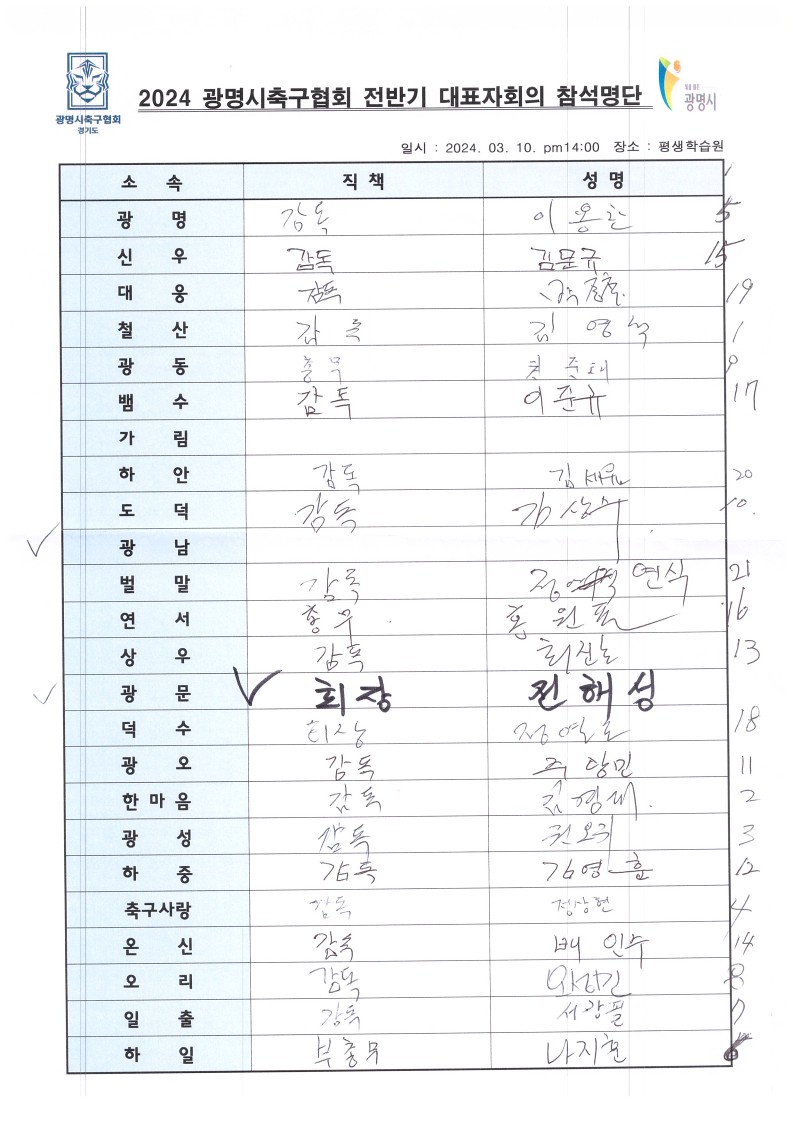 광명시축구협회
경기도
2024 광명시축구협회 전반기 대표자회의 참석명단
광명시
일시 : 2024. 03. 10. pm14:00 장소 : 평생학습원
소 속 직 책 성 명
광 명 감독 이용한 5
신 우 감독 김문규 15
대 웅 감독 19
철 산 감독 김영석 1
광 동 총무 준태 9
뱀 수 감독 이준규 17
가 림
하 안 감독 김세윤 20
도 덕 감독 김상수 10.
광 남
벌 말 감독 정 연식 21
연 서 총무 홍원표 16
상 우 감독 최진노 13
광 문 회장 전해성
덕 수 회장 정열 18
광 오 감독 주당민 11
한마음 감독 김형새. 2
광 성 감독 권오귀 3
하 중 감독 김영훈 12
축구사랑 감독 정상현 4
온 신 감독 배인수 14
오 리 감독 8
일 출 감독 서광필 7
하 일 부총무 나지훈